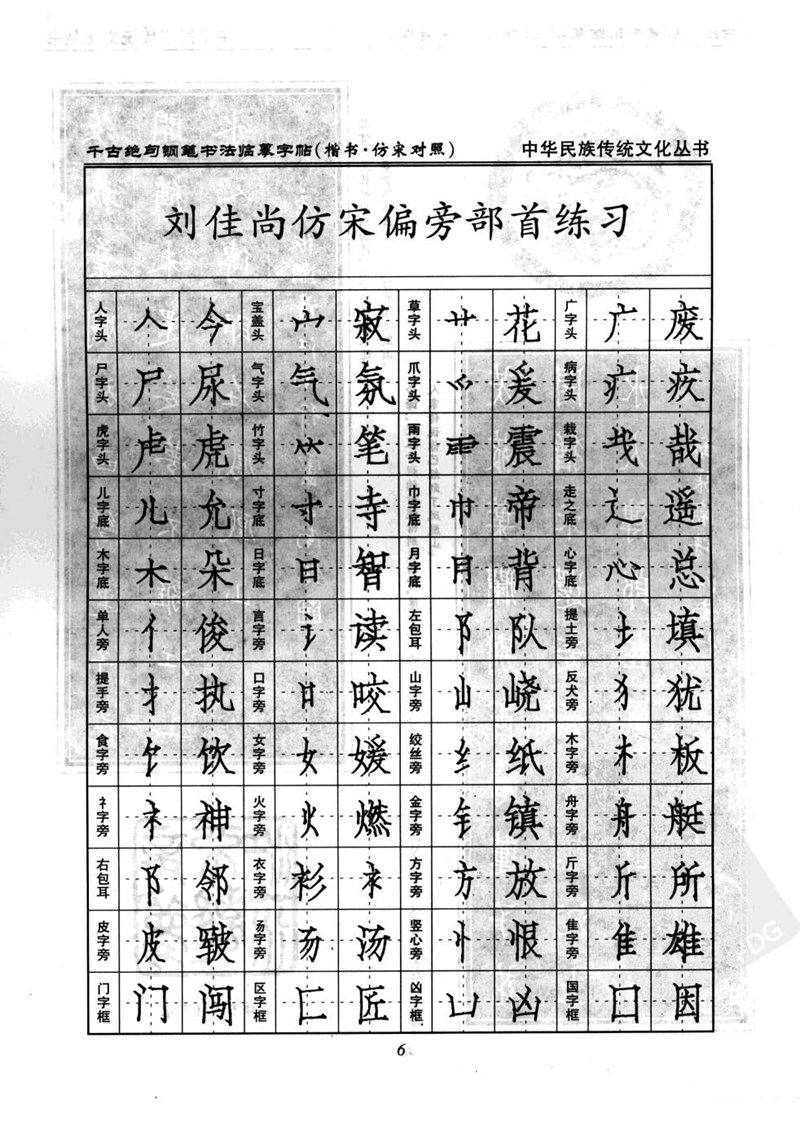 千古绝句钢笔书法临摹字帖(楷书·仿宋对照) 中华民族传统文化丛书
刘佳尚仿宋偏旁部首练习
人字头 人 今 宝盖头 宀 寂 草字头 艹 花 广字头 广 废
尸字头 尸 尿 气字头 气 氛 爪字头 爫 爰 病字头 疒 疚
虎字头 虍 虎 竹字头 ⺮ 笔 雨字头 ⻗ 震 栽字头 𢦏 哉
儿字底 儿 允 寸字底 寸 寺 巾字底 巾 帝 走之底 辶 遥
木字底 木 朵 日字底 日 智 月字底 月 背 心字底 心 总
单人旁 亻 俊 言字旁 讠 读 左包耳 阝 队 提土旁 土 填
提手旁 扌 执 口字旁 口 咬 山字旁 山 峣 反犬旁 犭 犹
食字旁 饣 饮 女字旁 女 媛 绞丝旁 纟 纸 木字旁 木 板
礻字旁 礻 神 火字旁 火 燃 金字旁 钅 镇 舟字旁 舟 艇
右包耳 阝 邻 衣字旁 衫 衤 方字旁 方 放 斤字旁 斤 所
皮字旁 皮 皲 𠃓字旁 𠃓 汤 竖心旁 忄 恨 隹字旁 隹 雄
门字框 门 闯 区字框 匚 匠 凶字框 凵 凶 国字框 囗 因
6